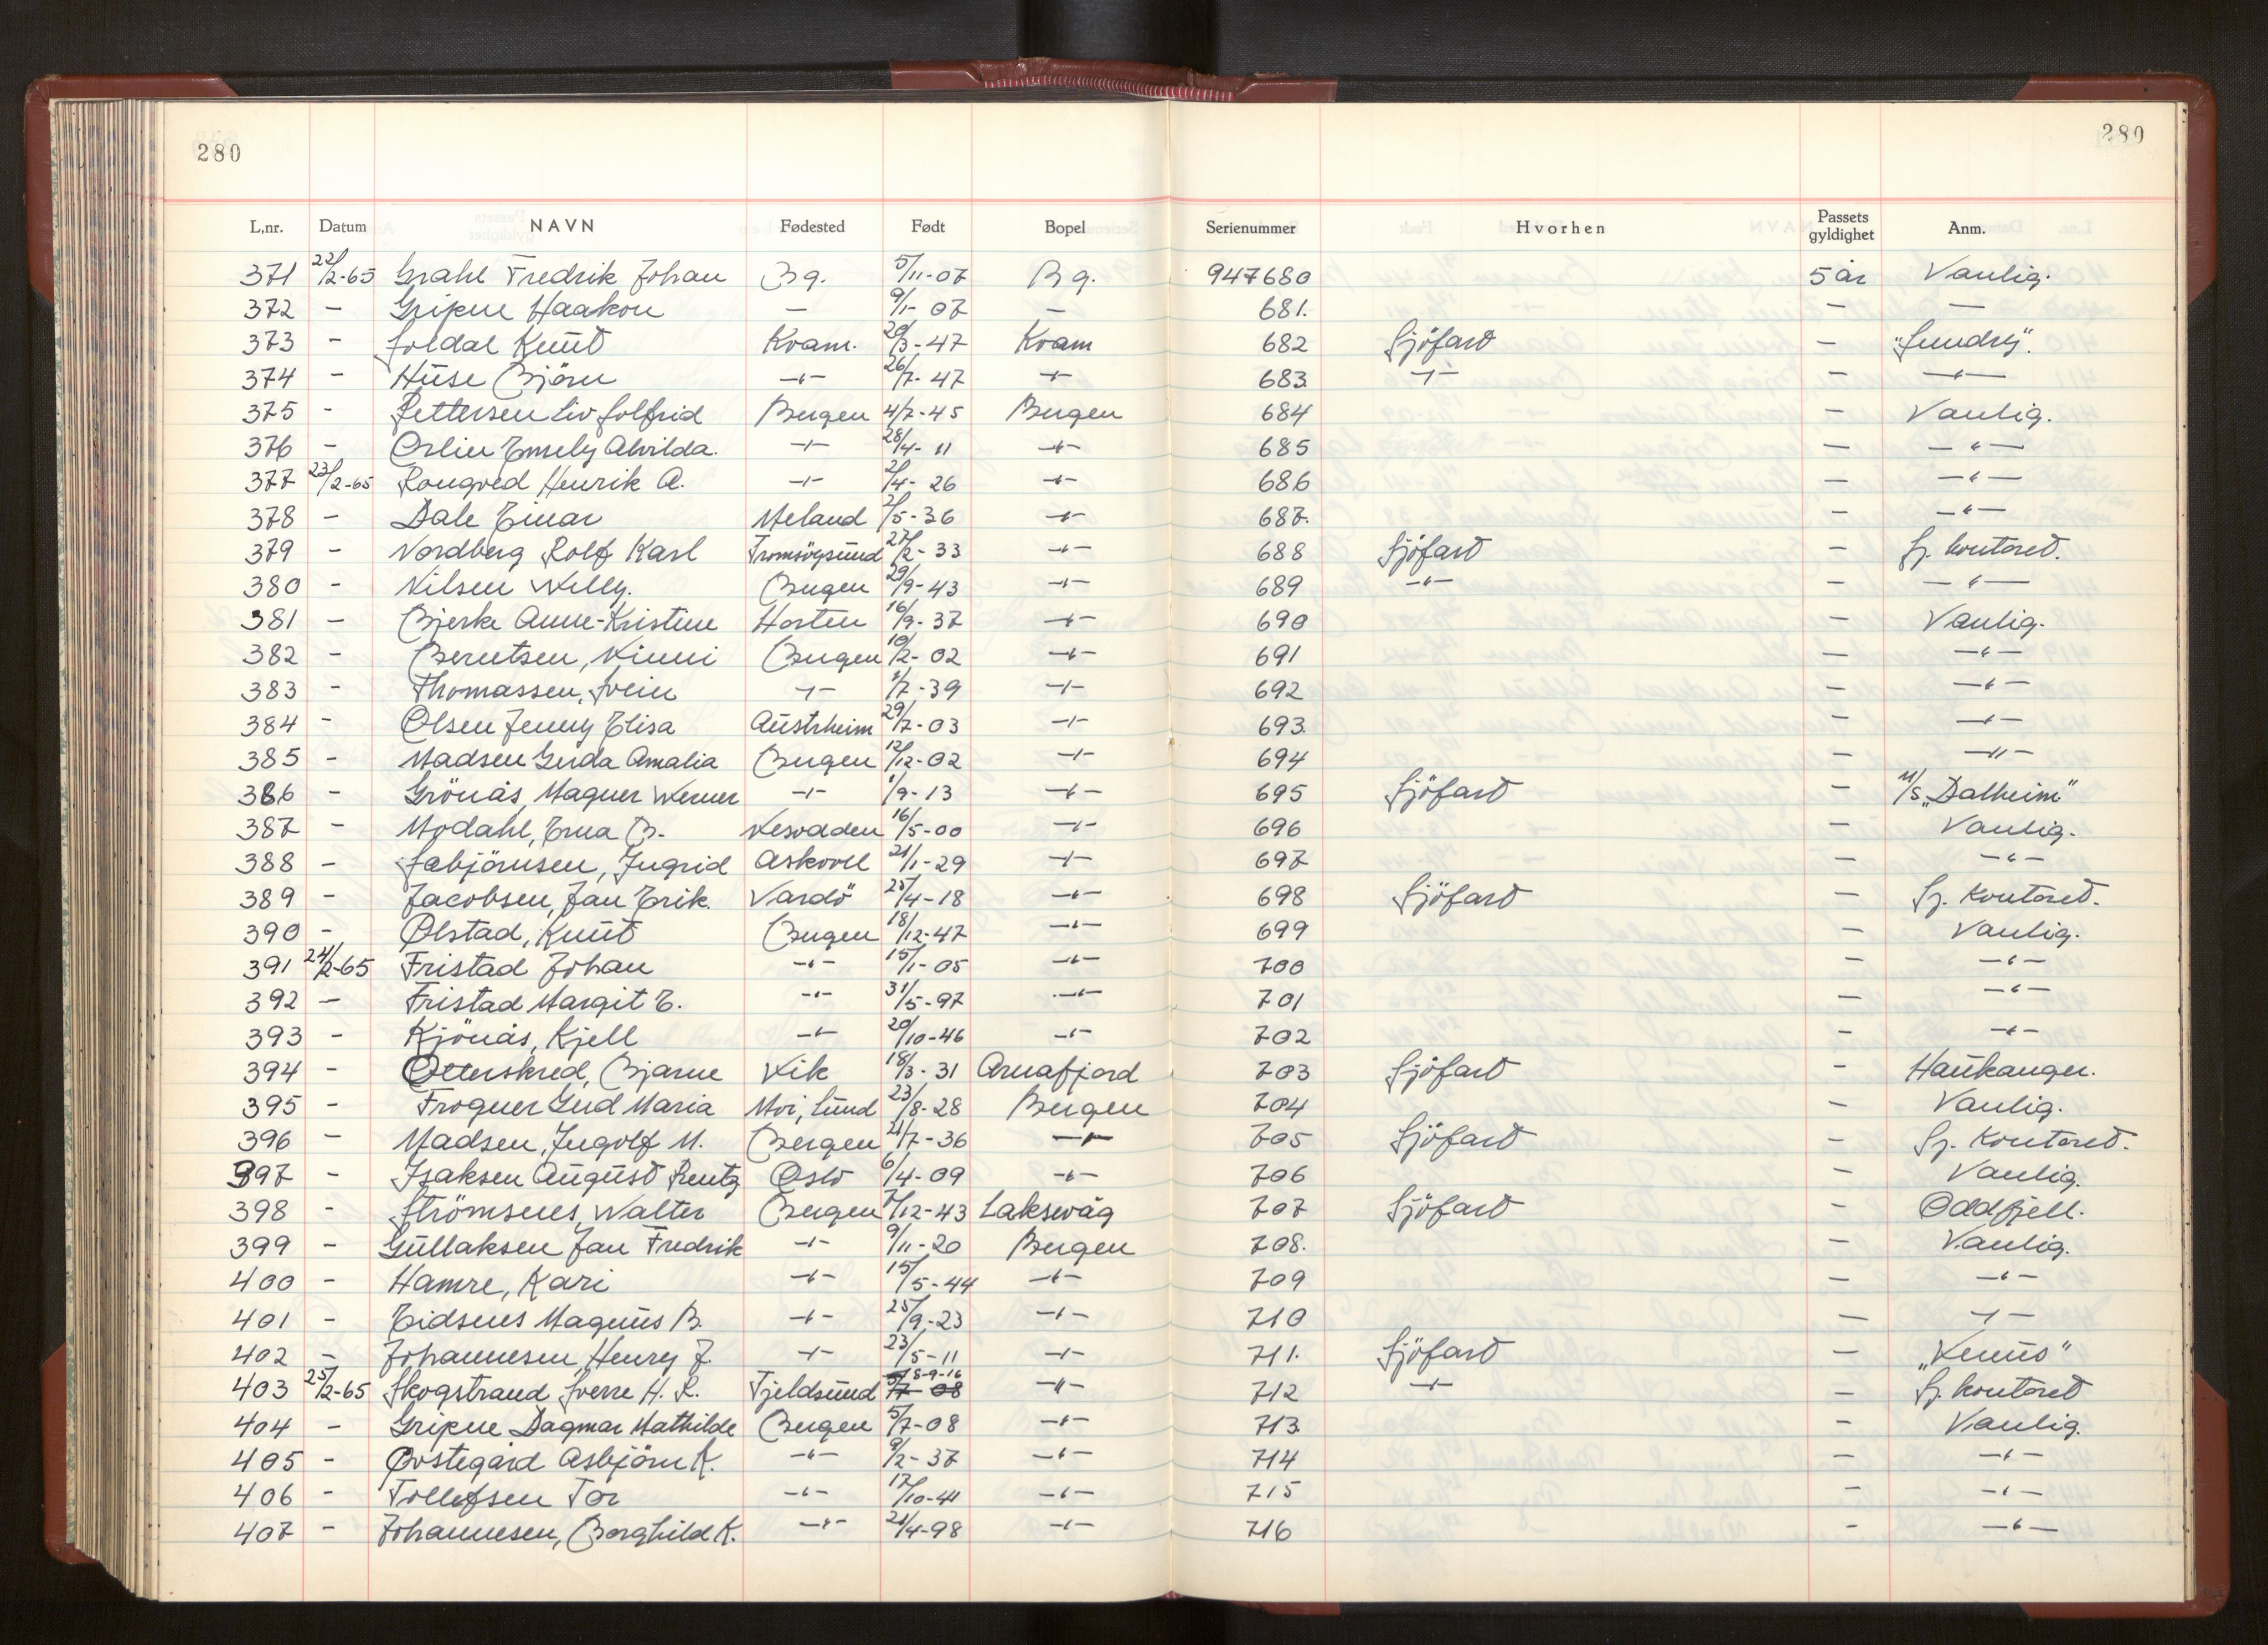 280 280
L.nr. Datum NAVN Fødested Født Bopel Serienummer Hvorhen Passets gyldighet Anm.
371 22/2-65 Grahl Fredrik Johan Bg. 5/11-07 Bg. 947680 5 år Vanlig.
372 - Gripne Haakon — 9/1-07 — 681. — —
373 - Soldal Knut Kvam. 20/3-47 Kvam 682 Sjöfart — "Sundry".
374 - Huse Björn -"- 26/7-47 -"- 683. -"- — -"-
375 - Pettersen Liv Solfrid Bergen 4/7-45 Bergen 684 — Vanlig.
376 - Emely Alvilda. -"- 28/4-11 -"- 685 — -"-
377 23/2-65 Rongved Henrik A. -"- 2/4-26 -"- 686 — -"-
378 - Dale Einar Meland 2/5-36 -"- 687. — -"-
379 - Nordberg Rolf Karl Tromsöysund 27/2-33 -"- 688 Sjöfart — Sj. kontoret.
380 - Nilsen Willy. Bergen 29/9-43 -"- 689 -"- — -"-
381 - Bjerke Anne-Kristine Horten 16/9-37 -"- 690 — Vanlig.
382 - Berntsen, Ninni Bergen 10/2-02 -"- 691 — -"-
383 - Thomassen, Svein -"- 1/7-39 -"- 692 — -"-
384 - Olsen Jenny Elisa Austrheim 29/7-03 -"- 693. — -"-
385 - Madsen Gerda Amalia Bergen 12/12-02 -"- 694 — -"-
386 - Grönås, Magner Werner -"- 1/9-13 -"- 695 Sjöfart — M/S "Dalheim"
387 - Modahl, Erna B. Nesodden 16/5-00 -"- 696 — Vanlig.
388 - Sæbjörnsen, Ingrid Askvoll 21/1-29 -"- 697 — -"-
389 - Jacobsen, Jan Erik. Vardö 25/4-18 -"- 698 Sjöfart — Sj. Kontoret.
390 - Ølstad, Knut Bergen 18/12-47 -"- 699 — Vanlig.
391 24/2-65 Fristad Johan -"- 15/1-05 -"- 700 — -"-
392 - Fristad Margit E. -"- 31/5-97 -"- 701 — -"-
393 - Kjönås, Kjell -"- 20/10-46 -"- 702 — -"-
394 - Otterskred, Bjarne Vik 18/3-31 Arnafjord 703 Sjöfart — Haukanger.
395 - Frogner Gerd Maria Moi, Lund 23/8-28 Bergen 704 — Vanlig.
396 - Madsen, Ingolf M. Bergen 21/7-36 -"- 705 Sjöfart — Sj. Kontoret.
397 - Isaksen August Rentz Oslo 6/4-09 -"- 706 — Vanlig.
398 - Strömsnes, Walter Bergen /12-43 Laksevåg 707 Sjöfart — Oddfjell.
399 - Gullaksen Jan Fredrik -"- 9/11-20 Bergen 708. — Vanlig.
400 - Hamre, Kari -"- 15/5-44 -"- 709 — -"-
401 - Eidsnes Magnus B. -"- 25/9-23 -"- 710 — -"-
402 - Johannesen, Henry J. -"- 23/5-11 -"- 711. Sjöfart — "Venus"
403 25/2-65 Skogstrand Sverre H. L. Tjeldsund 5/7-08 18-9-16 -"- 712 -"- — Sj. kontoret
404 - Gripne Dagmar Mathilde Bergen 5/7-08 -"- 713. — Vanlig.
405 - Øvstegård Asbjörn K. -"- 9/2-37 -"- 714 — -"-
406 - Tollefsen Tor -"- 17/10-41 -"- 715 — -"-
407 - Johannesen, Borghild K. -"- 21/4-98 -"- 716 - -"-